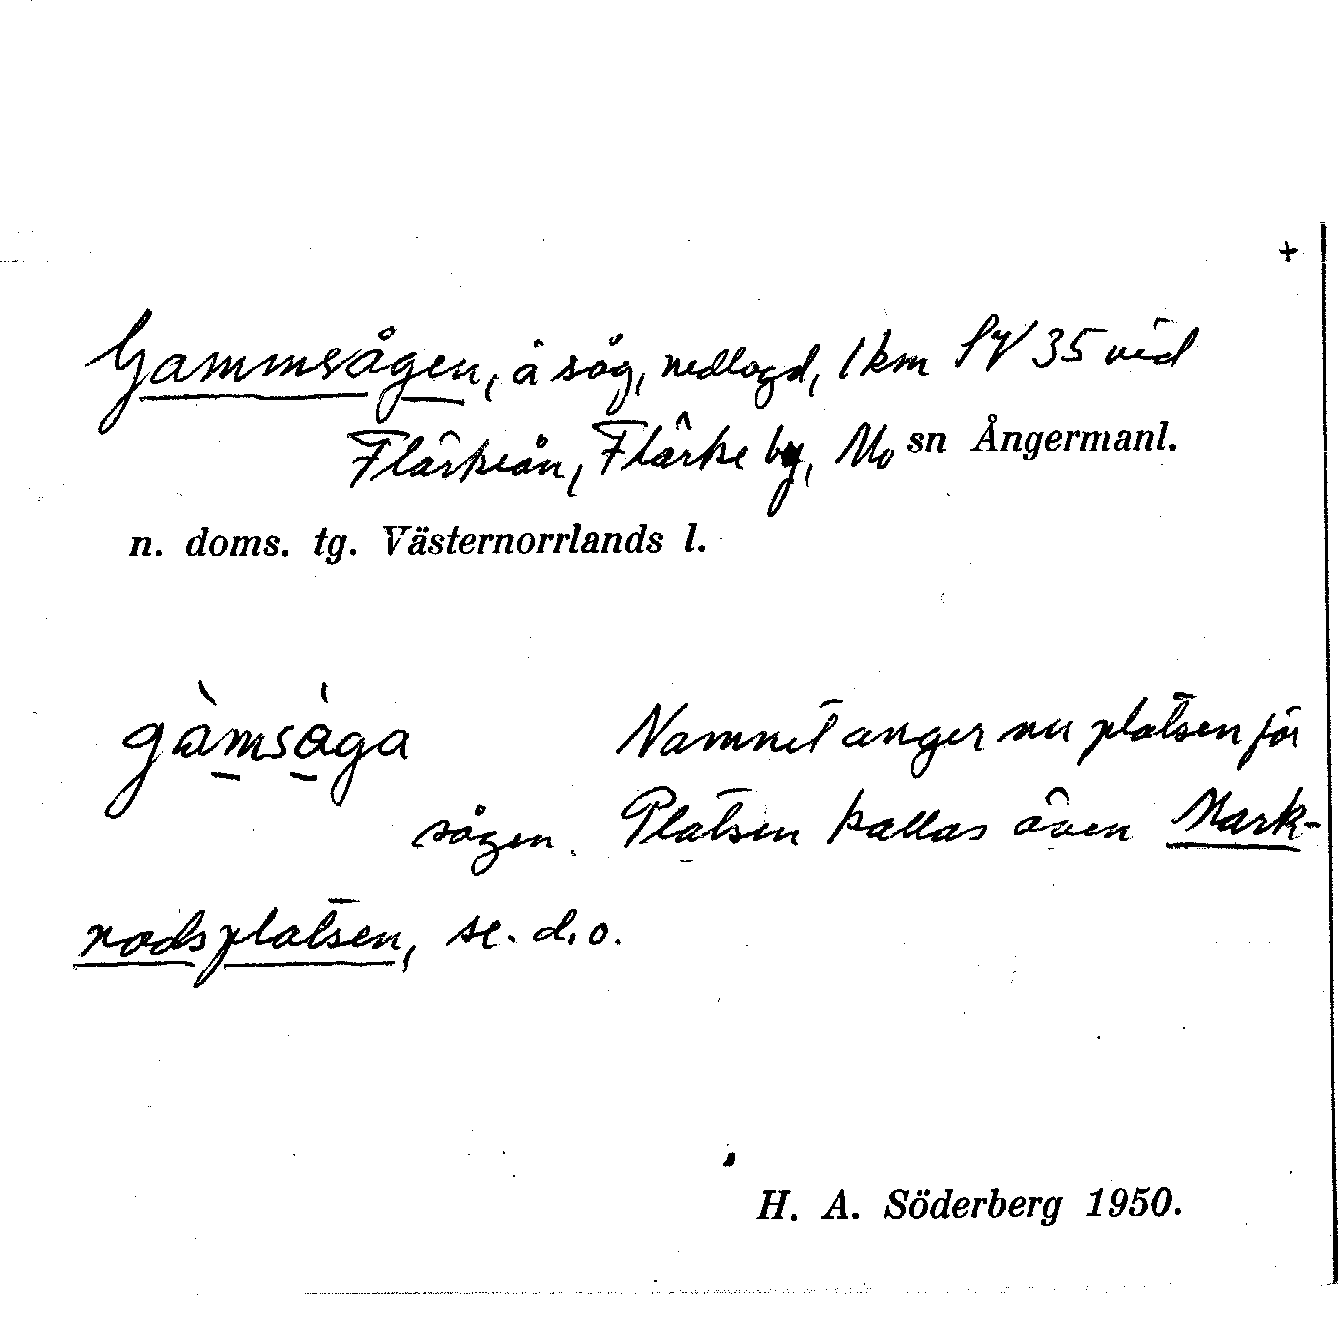 +
Gammsågen, å såg, nedlagd, 1 km SV 35 vid
Flärkeån, Flärke by, Mo sn Ångermanl.
n. doms. tg. Västernorrlands l.
gàmsåga Namnet anger nu platsen för
sågen. Platsen kallas även Mark-
nadsplatsen, se. d. o.
H. A. Söderberg 1950.